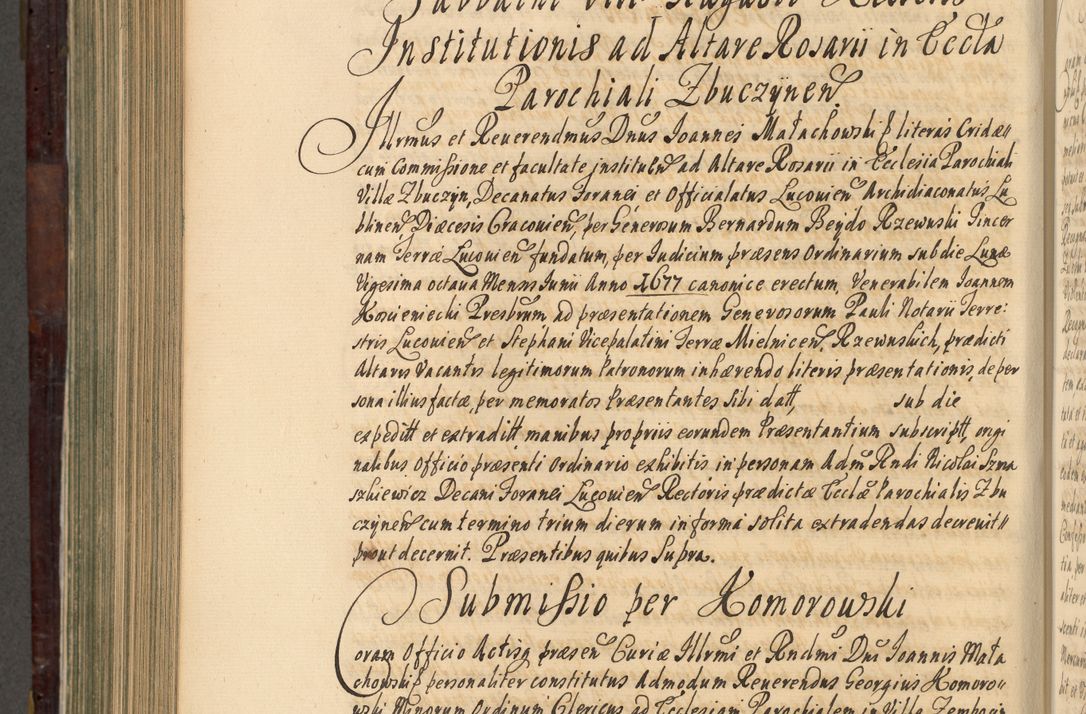 Institutionis ad Altare Rosarii in Eccła
Parochiali Zbuczÿnen̄.
Illrmus et Reuerendmus Dnus Joannes Małachowski ꝑ literas Cridæ
cum Commissione et facultate instituen̄ ad Altare Rosarii in Ecclesia Parochiali
Villæ Zbuczyn, Decanatus Foranei et Officialatus Lucouien̄ Archidiaconatus Lu
blinen̄ Diæcesis Cracouien̄, per Generosum Bernardum Beydo Rzewuski Pincer
nam Terræ Lucouien̄ fundatum, per Judicium præsens Ordinarium sub die Lunæ
Vigesima octaua Mensis Junii Anno 1677 canonice erectum, Venerabilem Joannem
Kosieniecki Presbrum, ad præsentationem Generosorum Pauli Notarii Terre:
stris Lucouien̄ et Stephani Vicepalatini Terræ Mielnicen̄, Rzewuskich, prædicti
Altaris Vacantis legitimorum Patronorum inhærendo literis præsentationis, de per
sona illius factæ, per memoratos Præsentantes sibi datt, sub die
expeditt et extraditt manibus propriis eorundem Præsentantium subscriptt, origi
nalibus Officio præsenti Ordinario exhibitis in personam Adm Rndi Nicolai Szma
szkiewicz Decani Foranei Lucouien̄ Rectoris prædictæ Ecclæ Parochialis Zbu
czynen̄ cum termino trium dierum in forma solita extradendas decreuit
prout decernit. Præsentibus quibus Supra.
Submissio per Komorowski
Coram Officio Actisq præsen̄ Curiæ Illrmi et Rndmi Dni Joannis Mała
chowski ꝑ personaliter constitutus Admodum Reuerendus Georgius Komoro
wski Minorum Ordinum Clericus ad Ecclesiam Parochialem in Villa